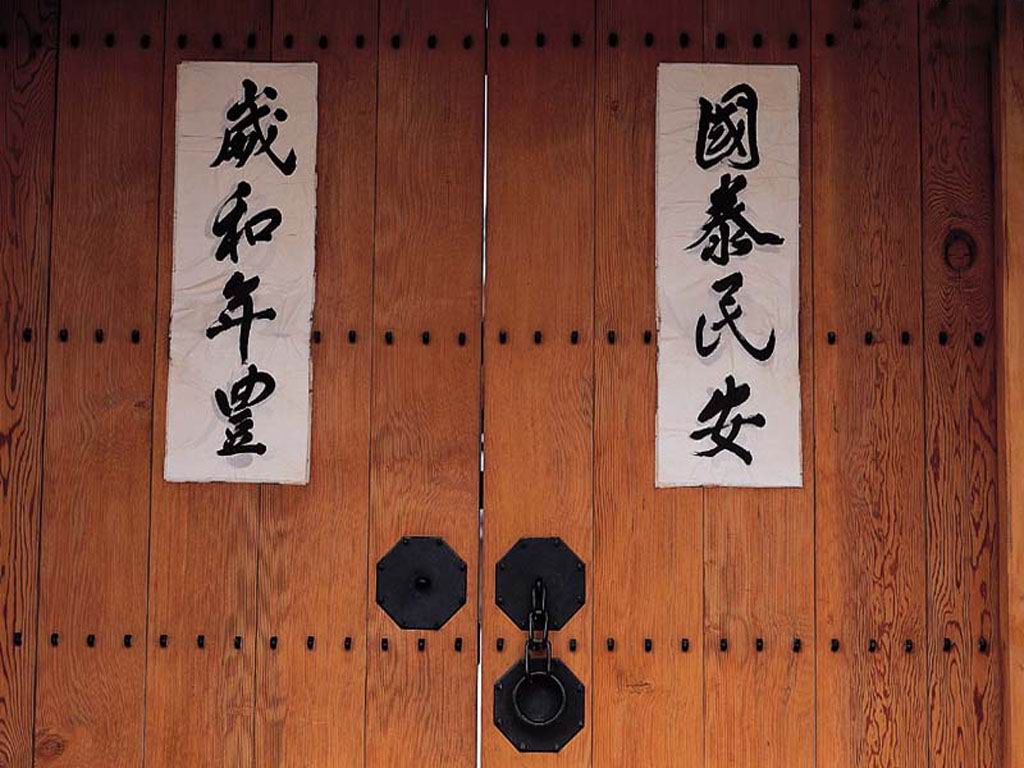 國泰民安
歲和年豐